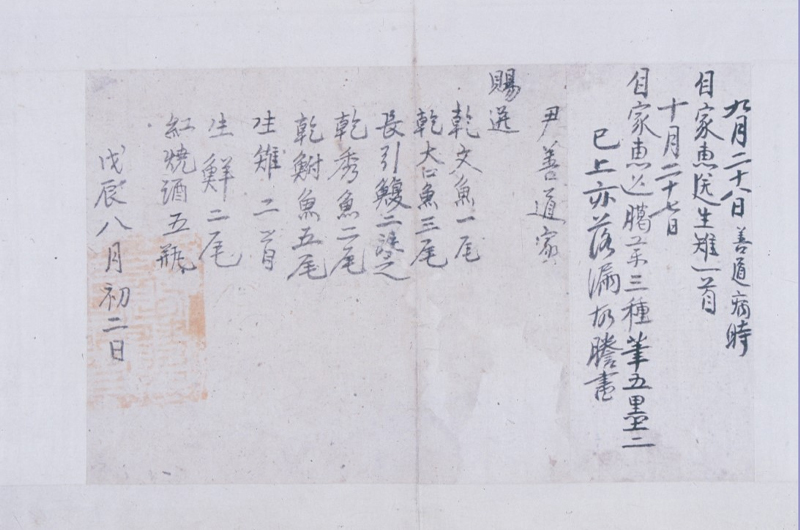 九月二十八日 善道病時
自家惠送生雉一首
十月二十七日
自家惠送臘藥三種筆五墨二
已上亦落漏故謄書
尹善道家
賜送
乾文魚一尾
乾大口魚三尾
長引鰒二注之
乾秀魚二尾
乾鮒魚五尾
生雉二首
生鮮二尾
紅燒酒五甁
戊辰八月初二日